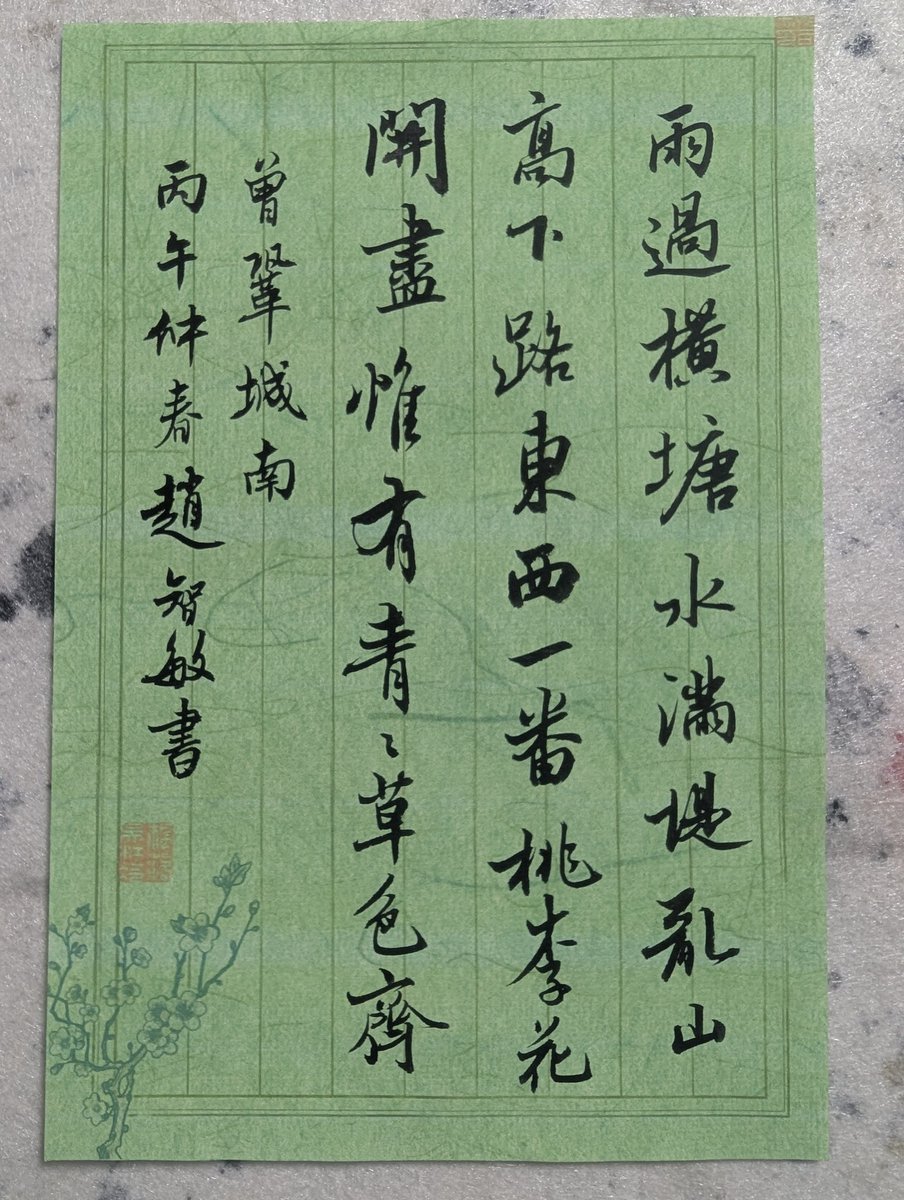 雨過橫塘水滿堤亂山
高下路東西一番桃李花
開盡惟有青〻草色齊
曾鞏城南
丙午仲春趙智敏書